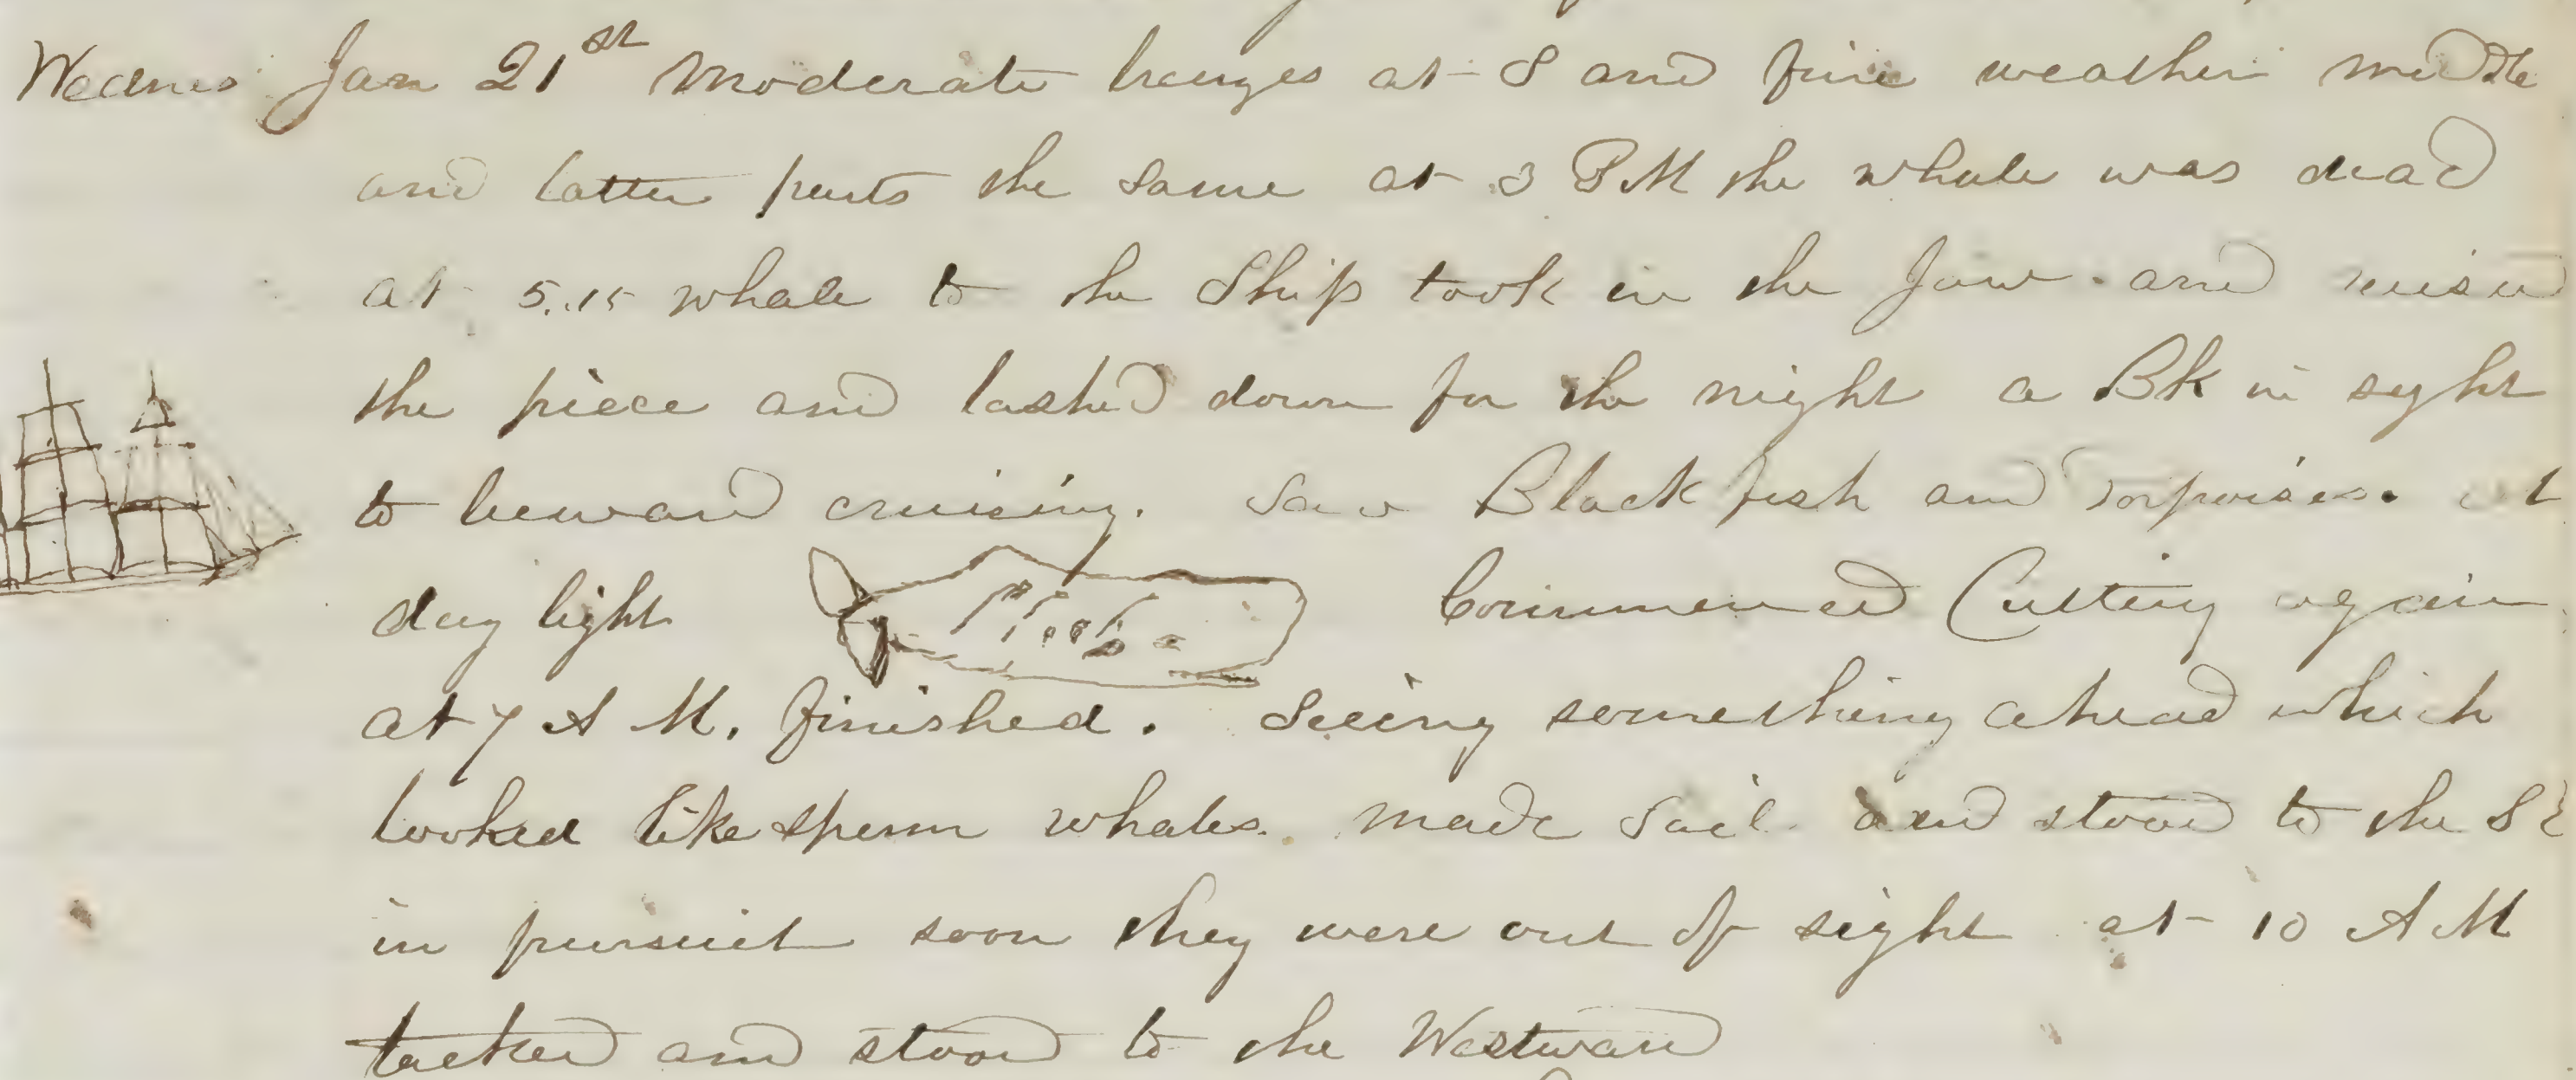 Wednes Jan 21st Moderate breezes at S and fine weather middle
and latter parts the same at 3 PM the whale was dead
at 5.15 whale to the Ship took in the Jaw and
the piece and lashed down for the night a Bk in sight
to leeward cruising. Saw Black fish and porpoises. at
day light Commenced Cutting again
at 7 A M. finished. Seeing something ahead which
looked like sperm whales. made Sail and stood to the SE
in pursuit soon they were out of sight at 10 AM
tacked and stood to the Westward